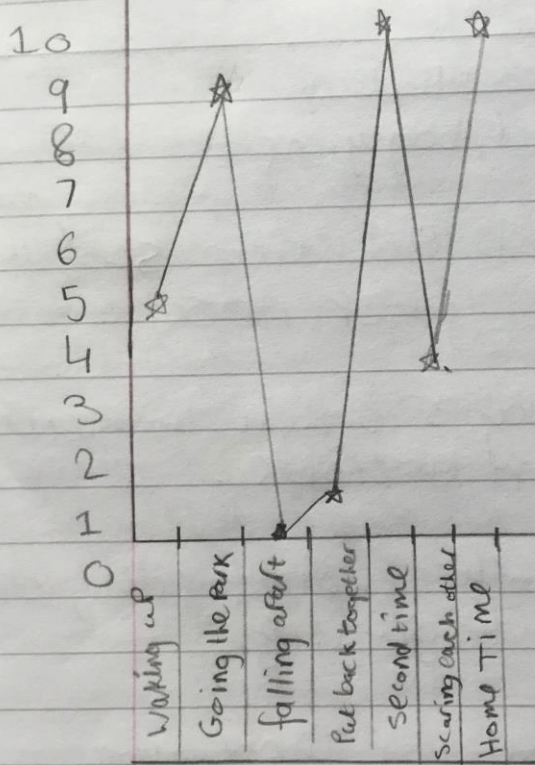 10
9
8
7
6
5
4
3
2
1
0
Waking up
Going the Park
falling apart
Put back together
second time
Scaring each other
Home Time